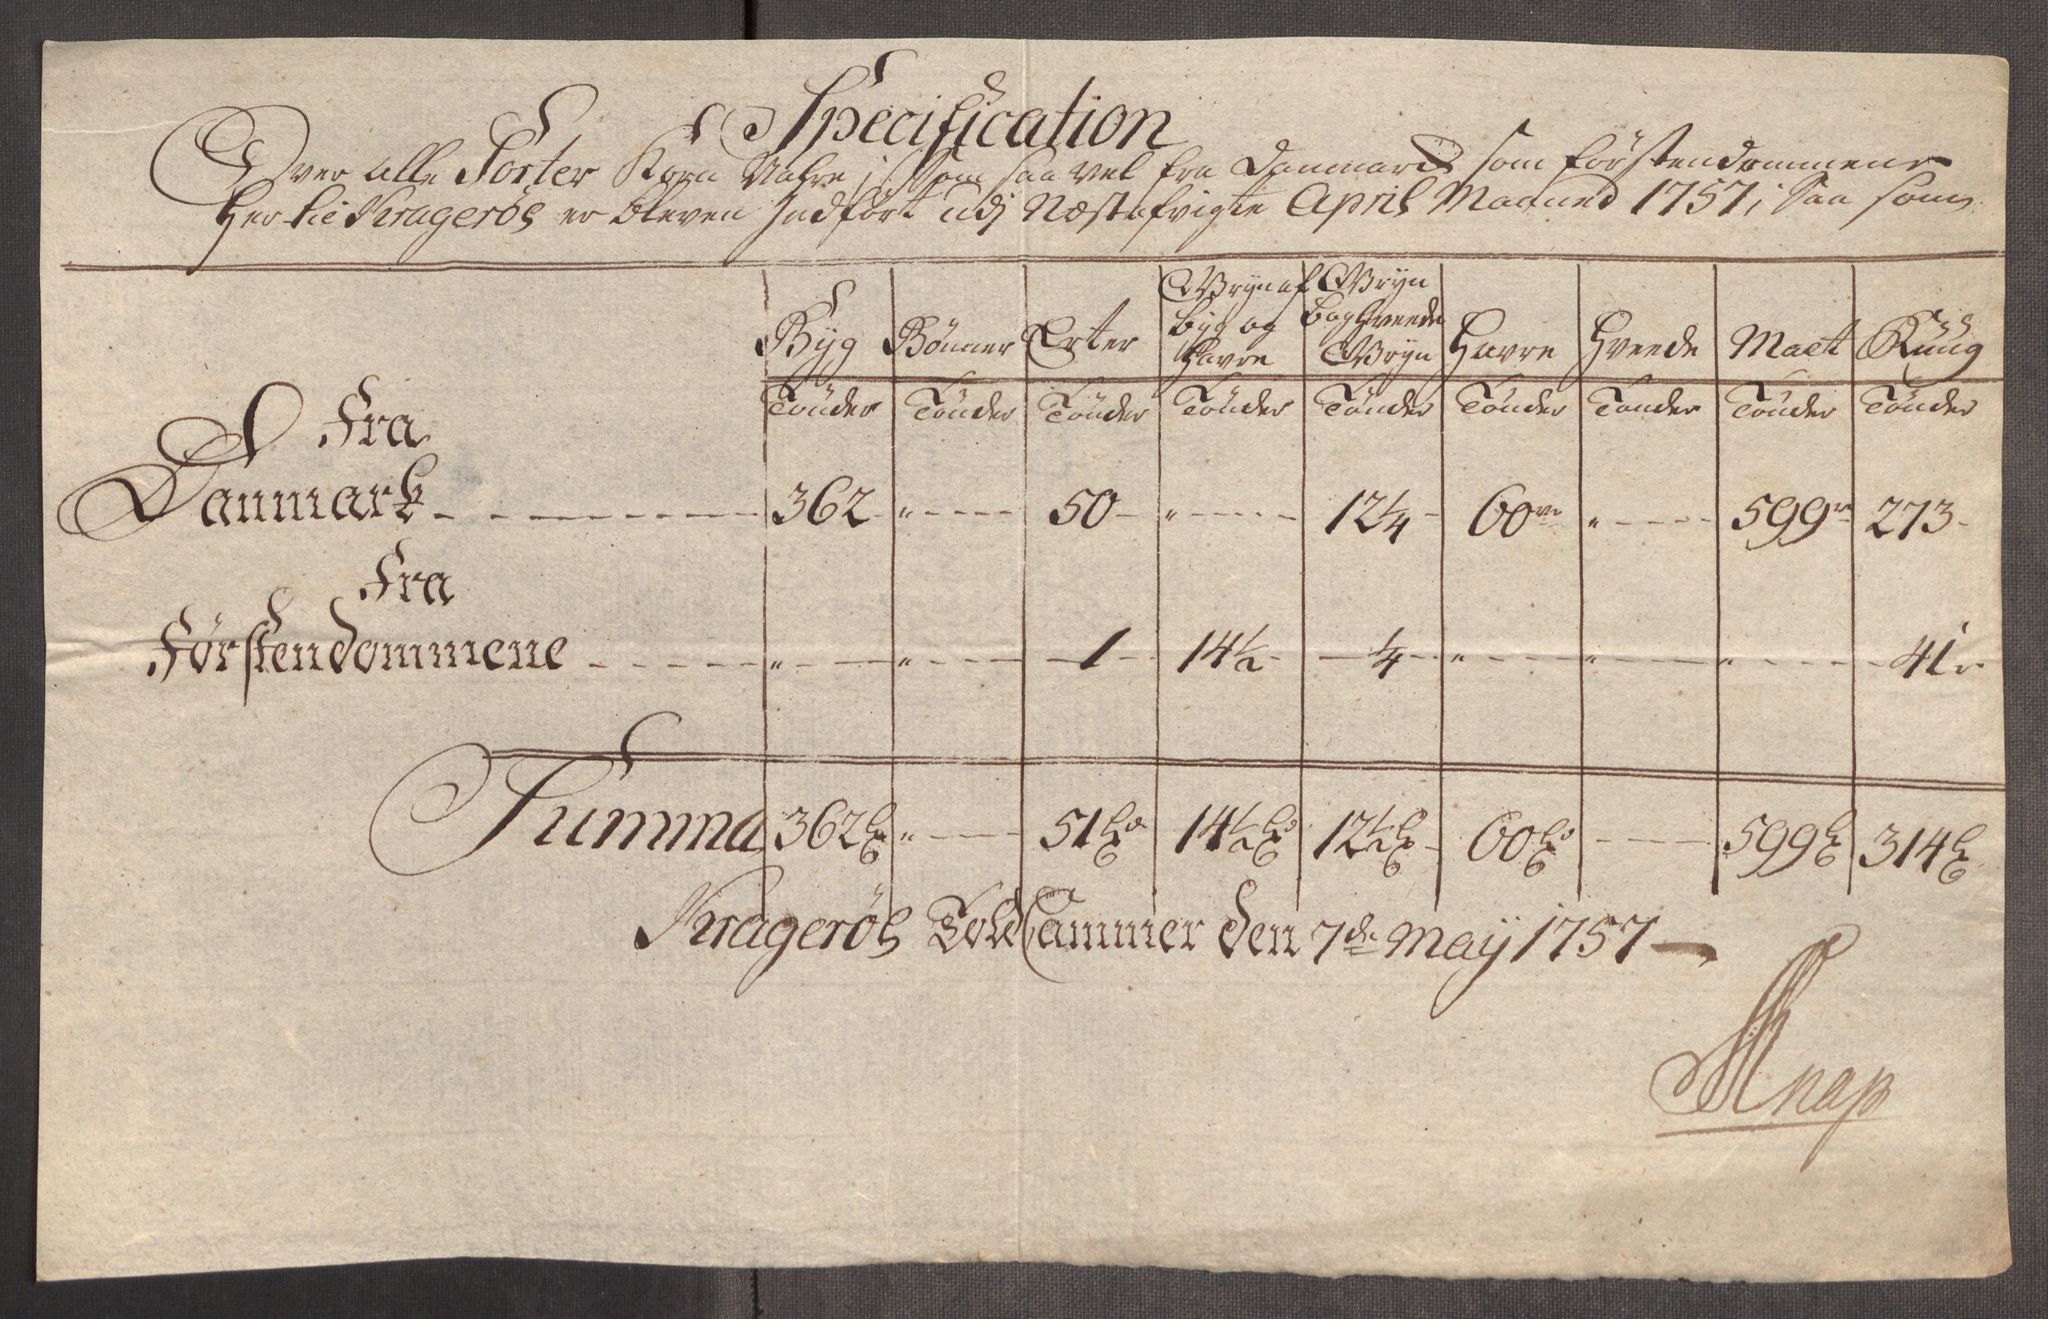 Specification
Over alle Sorter Korn Vahre, som saa vel fra Danmarck som förstendommene
Her til Krageröe er bleven Indfört udj Næstafvigte April Maaned 1757; Saa som
Byg Bönner Erter Gryn af Byg og Havre Gryn Boghveede Gryn Havre Hveede Maet Rüüg
Tönder Tönder Tönder Tönder Tönder Tönder Tönder Tönder Tönder
Fra
Danmark 362 " 50 " 12¼ 60 " 599 273
Fra
Förstendommene " " 1 14½ ¼ " " " 41
Summa 362 " 51 14½ 12½ 60 599 314
Krageröe Told Cammer den 7de Maÿ 1757
Knap